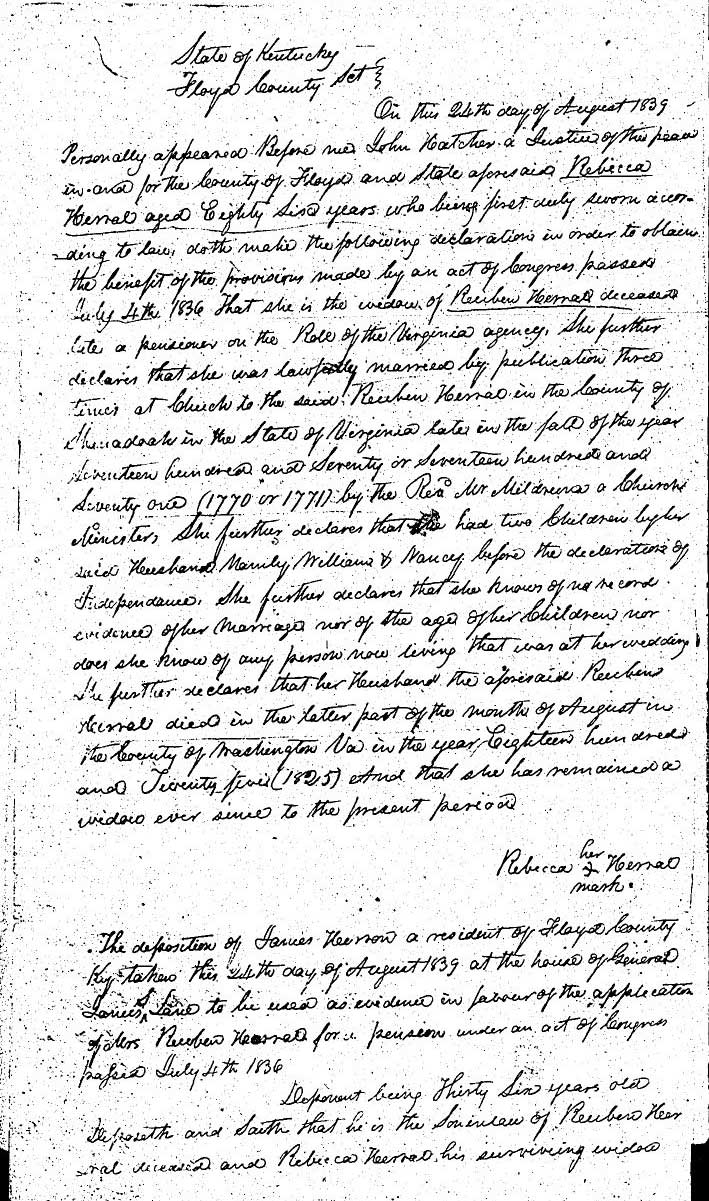 State of Kentucky
Floyd County Sct
On this 24th day of August 1839
Personally appeared Before me John Hatcher a Justice of the peace
in and for the County of Floyd and State aforesaid Rebecca
Herral aged Eighty Six years who being first duly sworn accor-
-ding to law, doth make the following declaration in order to obtain
the benefit of the provisions made by an act of Congress passed
July 4th 1836 That she is the widow of Reuben Herral deceased
late a pensioner on the Role of the Virginia agency. She further
declares that she was lawfully married by publication three
times at Church to the said Reuben Herral in the County of
Shanadoah in the State of Virginia late in the fall of the year
Seventeen hundred and Seventy or Seventeen hundred and
Seventy one (1770 or 1771) by the Revd Mr a Church
Minister. She further declares that she had two Children by her
said Husband Namily William & Nancy before the declaration of
Independance. She further declares that she knows of no record
evidence of her Marriage nor of the age of her Children nor
does she know of any person now living that was at her wedding
She further declares that her Husband the aforesaid Reuben
Herral died in the latter part of the month of August in
the County of Washington Va in the year Eighteen hundred
and Twenty five (1825) And that she has remained a
widow ever since to the present period
Rebecca her Herral
mark.
The deposition of James Herron a resident of Floyd County
Ky taken this 24th day of August 1839 at the house of General
James Lane to be used as evidence in favour of the application
of Mrs Reuben Herral for a pension under an act of Congress
passed July 4th 1836
Deponent being Thirty Six years old
Deposeth and Saith that he is the Soninlaw of Reuben Her
-ral deceased and Rebecca Herral his surviveing widow